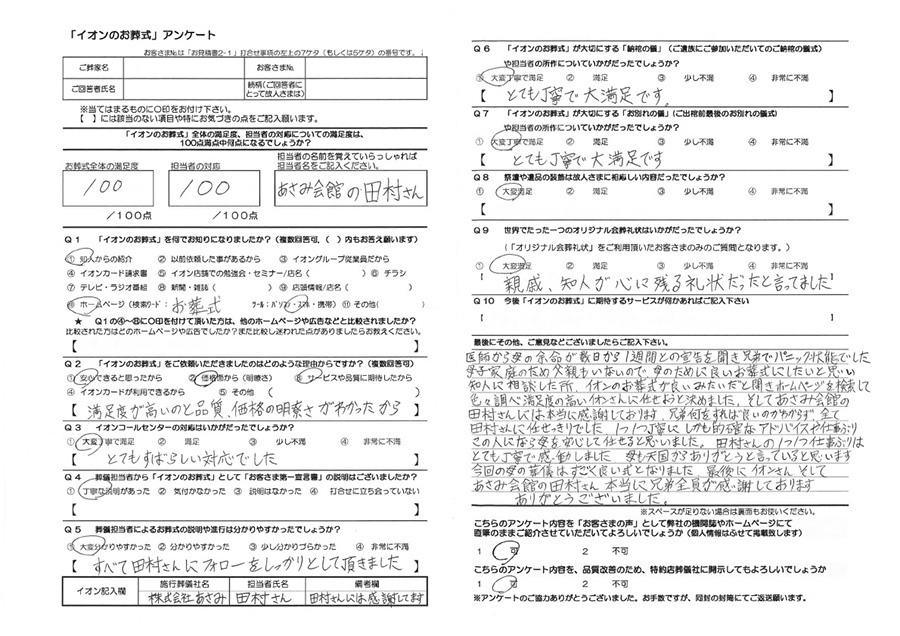 「イオンのお葬式」アンケート
お客さま№は「お見積書2-1」打合せ事項の左上の7ケタ（もしくは5ケタ）の番号です。
ご葬家名 お客さま№
ご回答者氏名 続柄（ご回答者にとって故人さまは）
※当てはまるものに○印をお付け下さい。
【 】には該当のない項目や特にお気づきの点をご記入願います。
「イオンのお葬式」全体の満足度、担当者の対応についての満足度は、
100点満点中何点になるでしょうか？
お葬式全体の満足度 担当者の対応 担当者の名前を覚えていらっしゃれば
担当者名をご記入ください。
100 100 あさみ会館の田村さん
/100点 /100点
Q1 「イオンのお葬式」を何でお知りになりましたか？（複数回答可。( )内もお答え願います）
① 知人からの紹介 ② 以前依頼した事があるから ③ イオングループ従業員だから
④ イオンカード請求書 ⑤ イオン店舗での勉強会・セミナー/店名( ) ⑥ チラシ
⑦ テレビ・ラジオ番組 ⑧ 新聞・雑誌( ) ⑨ 店頭情報/店名( )
⑩ ホームページ（検索ワード: お葬式 ツール：パソコン・スマホ・携帯） ⑪ その他( )
★ Q1の④～⑪に○印を付けて頂いた方は、他のホームページや広告などと比較されましたか？
比較された方はどのホームページや広告でしたか？また比較し迷われた点がありましたらお教えください。
【 】
Q2 「イオンのお葬式」をご依頼いただきましたのはどのような理由からですか？（複数回答可）
① 安心できると思ったから ② 価格面から（明瞭さ） ③ サービスや品質に期待したから
④ イオンカードが利用できるから ⑤ その他( )
【 満足度が高いのと品質、価格の明瞭さがわかったから 】
Q3 イオンコールセンターの対応はいかがだったでしょうか？
① 大変丁寧で満足 ② 満足 ③ 少し不満 ④ 非常に不満
【 とてもすばらしい対応でした 】
Q4 葬儀担当者から「イオンのお葬式」として「お客さま第一宣言書」の説明はございましたか？
① 丁寧な説明があった ② 気付かなかった ③ 説明はなかった ④ 打合せに立ち会っていない
【 】
Q5 葬儀担当者によるお葬式の説明や進行は分かりやすかったでしょうか？
① 大変分かりやすかった ② 分かりやすかった ③ 少し分かりづらかった ④ 非常に不満
【 すべて田村さんにフォローをしっかりとして頂きました 】
イオン記入欄 施行葬儀社名 担当者氏名 備考欄
株式会社あさみ 田村さん 田村さんには感謝してます
Q6 「イオンのお葬式」が大切にする「納棺の儀」（ご遺族にご参加いただいてのご納棺の儀式）
や担当者の所作についていかがだったでしょうか？
① 大変丁寧で満足 ② 満足 ③ 少し不満 ④ 非常に不満
【 とても丁寧で大満足です。 】
Q7 「イオンのお葬式」が大切にする「お別れの儀」（ご出棺前最後のお別れの儀式）
や担当者の所作についていかがだったでしょうか？
① 大変丁寧で満足 ② 満足 ③ 少し不満 ④ 非常に不満
【 とても丁寧で大満足です 】
Q8 祭壇や遺品の装飾は故人さまに相応しい内容だったでしょうか？
① 大変満足 ② 満足 ③ 少し不満 ④ 非常に不満
【 】
Q9 世界でたった一つのオリジナル会葬礼状はいかがだったでしょうか？
（「オリジナル会葬礼状」をご利用頂いたお客さまのみのご質問となります。）
① 大変満足 ② 満足 ③ 少し不満 ④ 非常に不満
【 親戚、知人が心に残る礼状だったと言ってました 】
Q10 今後「イオンのお葬式」に期待するサービスが何かあればご記入下さい
【 】
最後にその他、ご意見などございましたらご記入下さい。
医師から母の余命が数日から1週間との宣告を聞き兄弟でパニック状態でした
母子家庭のため父親もいないので、母のために良いお葬式にしたいと思い
知人に相談した所、イオンのお葬式が良いみたいだと聞きホームページを検索して
色々調べ満足度の高いイオンさんに任せおと決めました。そしてあさみ会館の
田村さんには本当に感謝しております。兄弟何をすれば良いのかわからず、全て
田村さんに任せっきりでした。1つ1つ丁寧にしかも的確なアドバイスや仕事ぶり
この人になら母を安心して任せると思いました。田村さんの1つ1つ仕事ぶりは
とても丁寧で感動しました 母も天国からありがとうと言っていると思います
今回の母の葬儀はすごく良い式となりました 最後にイオンさんそして
あさみ会館の田村さん本当に兄弟全員が感謝しております
ありがとうございました。
※スペースが足りない場合は裏面もお使いください。
こちらのアンケート内容を「お客さまの声」として弊社の機関誌やホームページにて
直筆のままご紹介させていただいてよろしいでしょうか（個人情報はふせて掲載致します）
1 可 2 不可
こちらのアンケート内容を、品質改善のため、特約店葬儀社に開示してもよろしいでしょうか
1 可 2 不可
※アンケートのご協力ありがとうございました。お手数ですが、同封の封筒にてご返送願います。